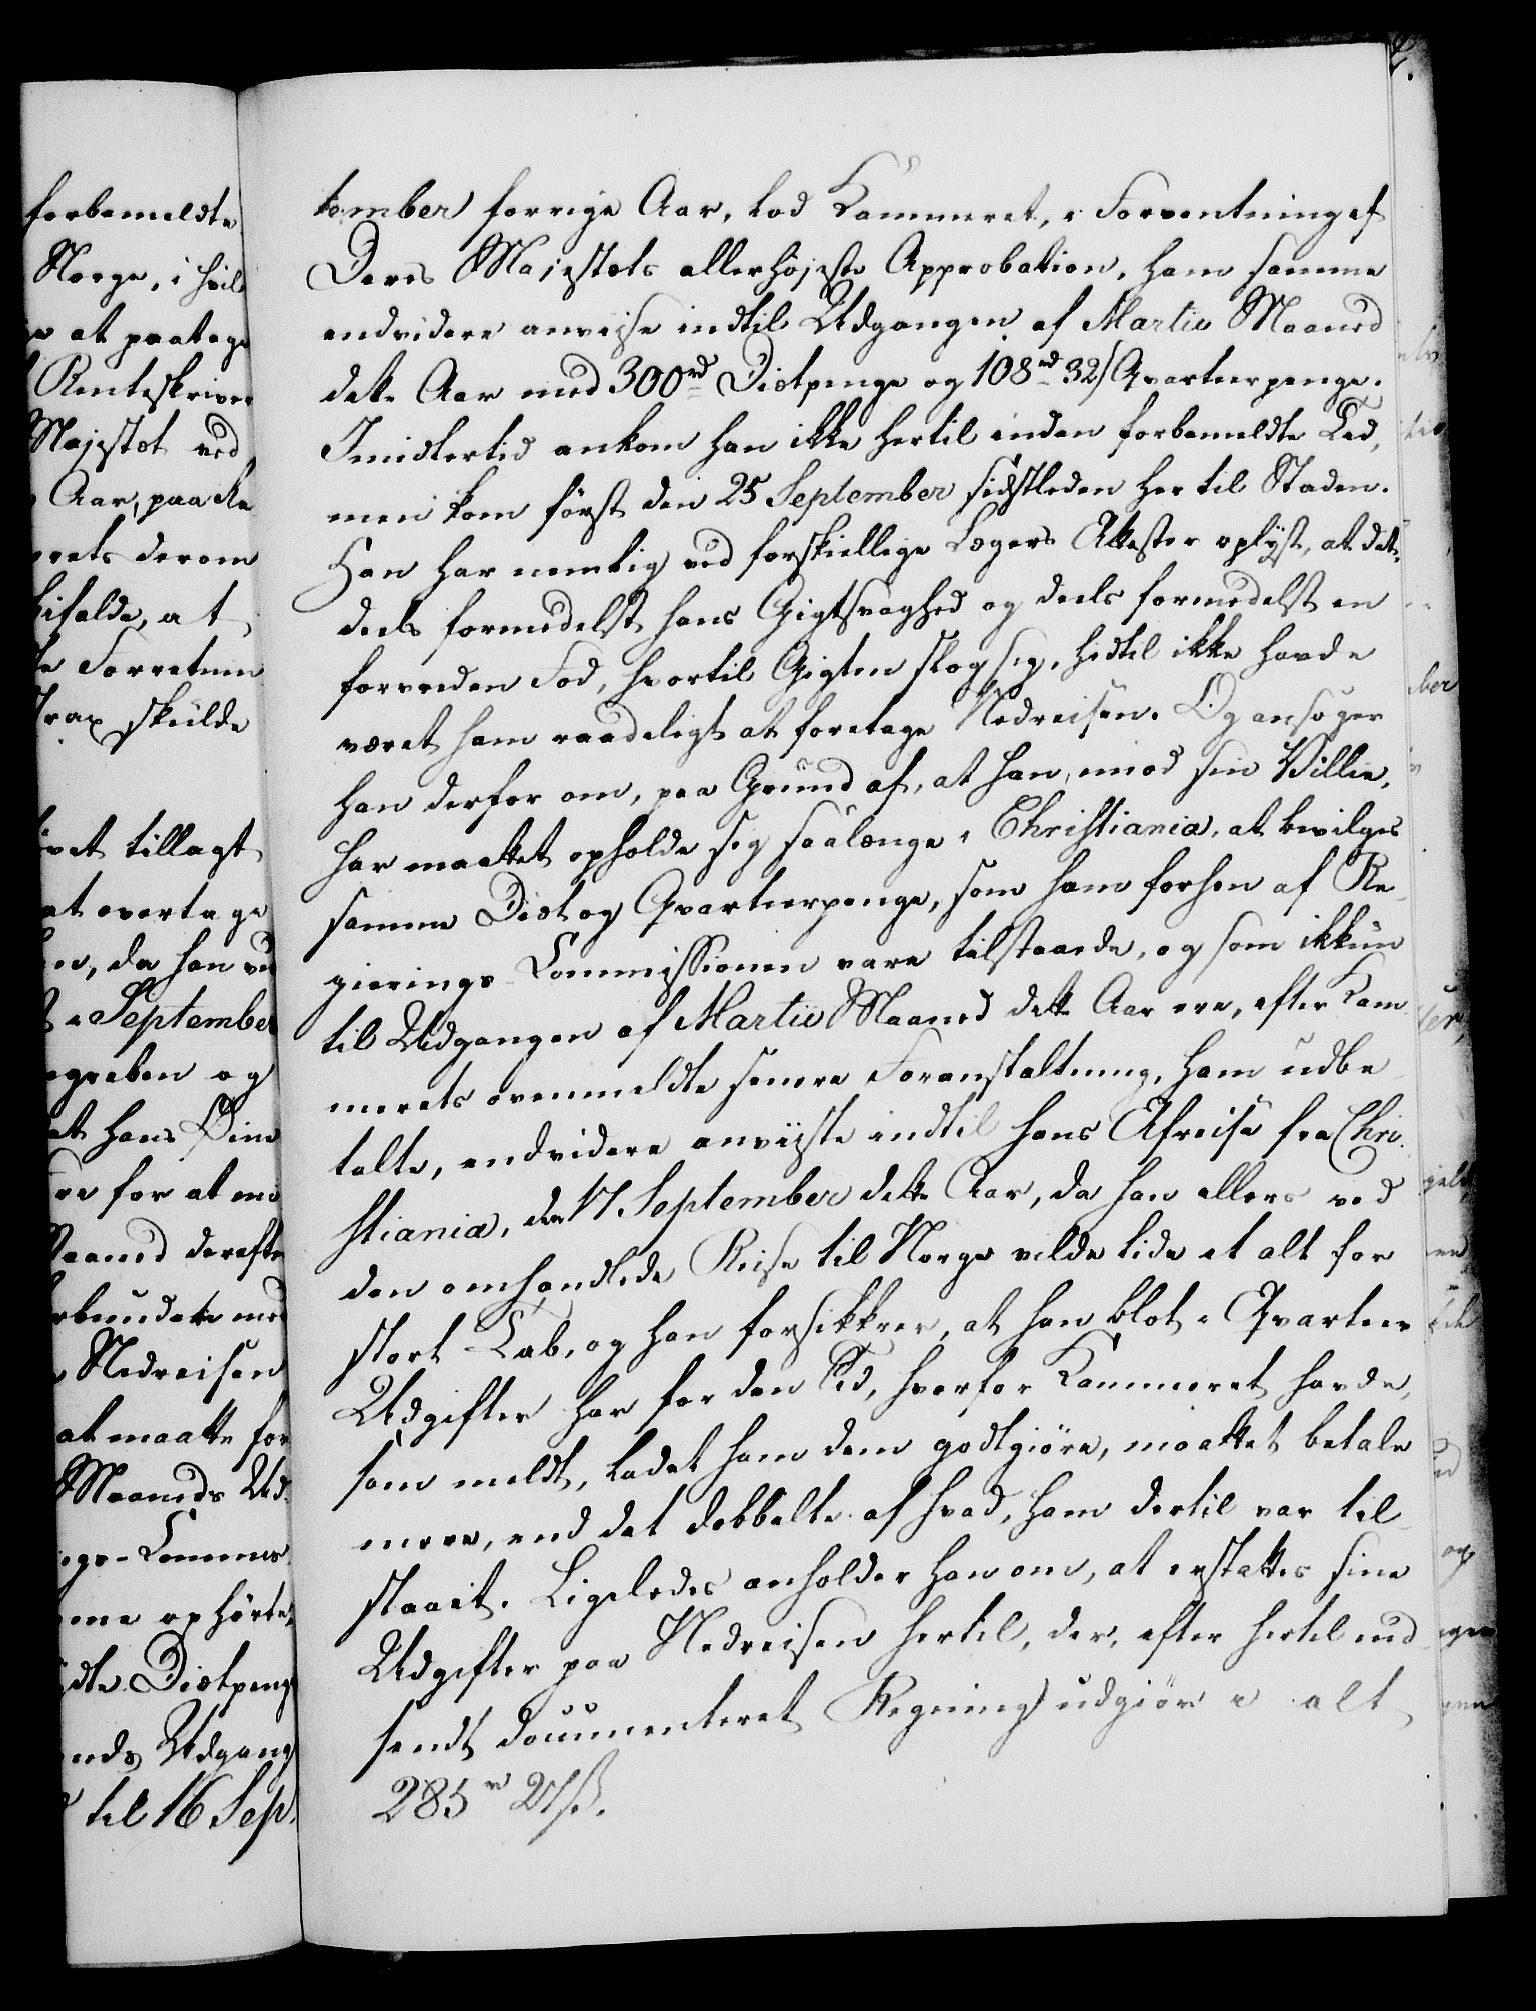 forbemeldte
Norge, i hvil
at paatage
Renteskriver
Majestæt ved
Aar, paa Re
rets derom
bifalde, at
te Forretnin
Trap skulde
ivet tillagt
at overtage
en, da han ved
i September
egreben og
at hans Prin
re for at mo
Maaned derefter
rbundete med
Nedreisen
at maatte for
Maaneds Ud
ngs-Commis
me ophørte
ldte Diætpenge
neds Udgang
til 16 Sep.
tember forrige Aar, lod Kammeret, i Forventning af
Deres Majestæts allerhøjeste Approbation, ham samme
endvidere anvise indtil Udgangen af Martii Maaned
dette Aar med 300 rd Diætpenge og 108 rd 32 s Qvarteerpenge.
Imidlertid ankom han ikke hertil inden forbemeldte Tid,
men kom først den 25 September sidstleden her til Staden.
Han har nemlig ved forskiellige Lægers Attester oplyst, at det,
deels formedelst hans Gigtsvaghed og deels formedelst en
forvreden Fod, hvortil Gigten slog sig, hidtil ikke havde
været ham raadeligt at foretage Nedreisen. Og ansøger
han derfor om, paa Grund af, at han, imod sin Villie,
har maattet opholde sig saalænge i Christiania, at bevilges
samme Diæt og Qvarteerpenge, som ham forhen af Re-
gierings-Commissionen vare tilstaaede, og som ikkun
til Udgangen af Martii Maaned dette Aar ere, efter Kam
merets ovenmeldte senere Foranstaltning, ham udbe
talte, endvidere anviiste indtil hans Afreise fra Chri-
stiania, den 17 September dette Aar, da han ellers ved
den omhandlede Reise til Norge vilde lide et alt for
stort Tab, og han forsikkrer, at han blot i Qvarteer
Udgifter har for den Tid, hvorfor Kammeret havde,
som meldt, ladet ham dem godtgiøre, maattet betale
mere, end det dobbelte af hvad, ham dertil var til
staaet. Ligeledes anholder han om, at erstattes sine
Udgifter paa Nedreisen hertil, der, efter hertil ind
sendt documenteret Regning udgiør i alt
285 rd 21 ß.